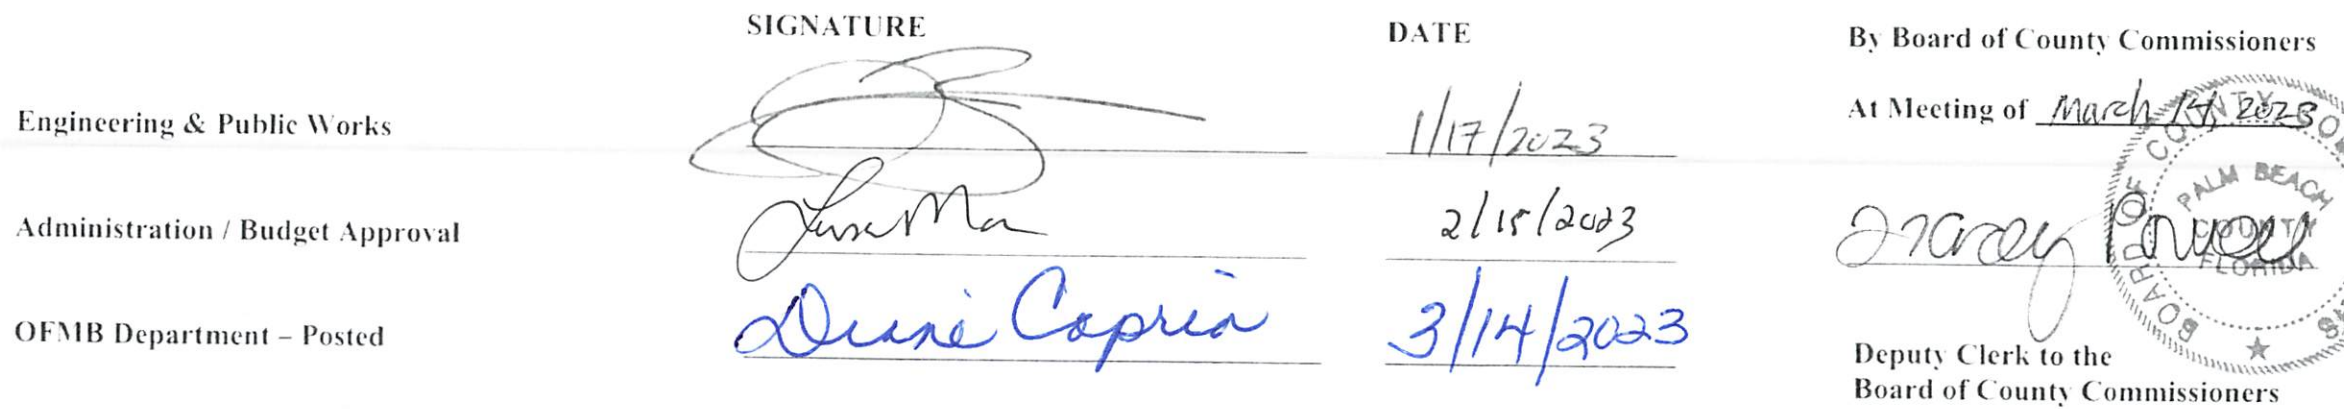 SIGNATURE DATE By Board of County Commissioners
Engineering & Public Works 1/17/2023 At Meeting of March 14, 2023
Administration / Budget Approval 2/15/2023
OFMB Department – Posted Diane Capria 3/14/2023
Deputy Clerk to the
Board of County Commissioners
BOARD OF COUNTY
PALM BEACH
COUNTY
FLORIDA